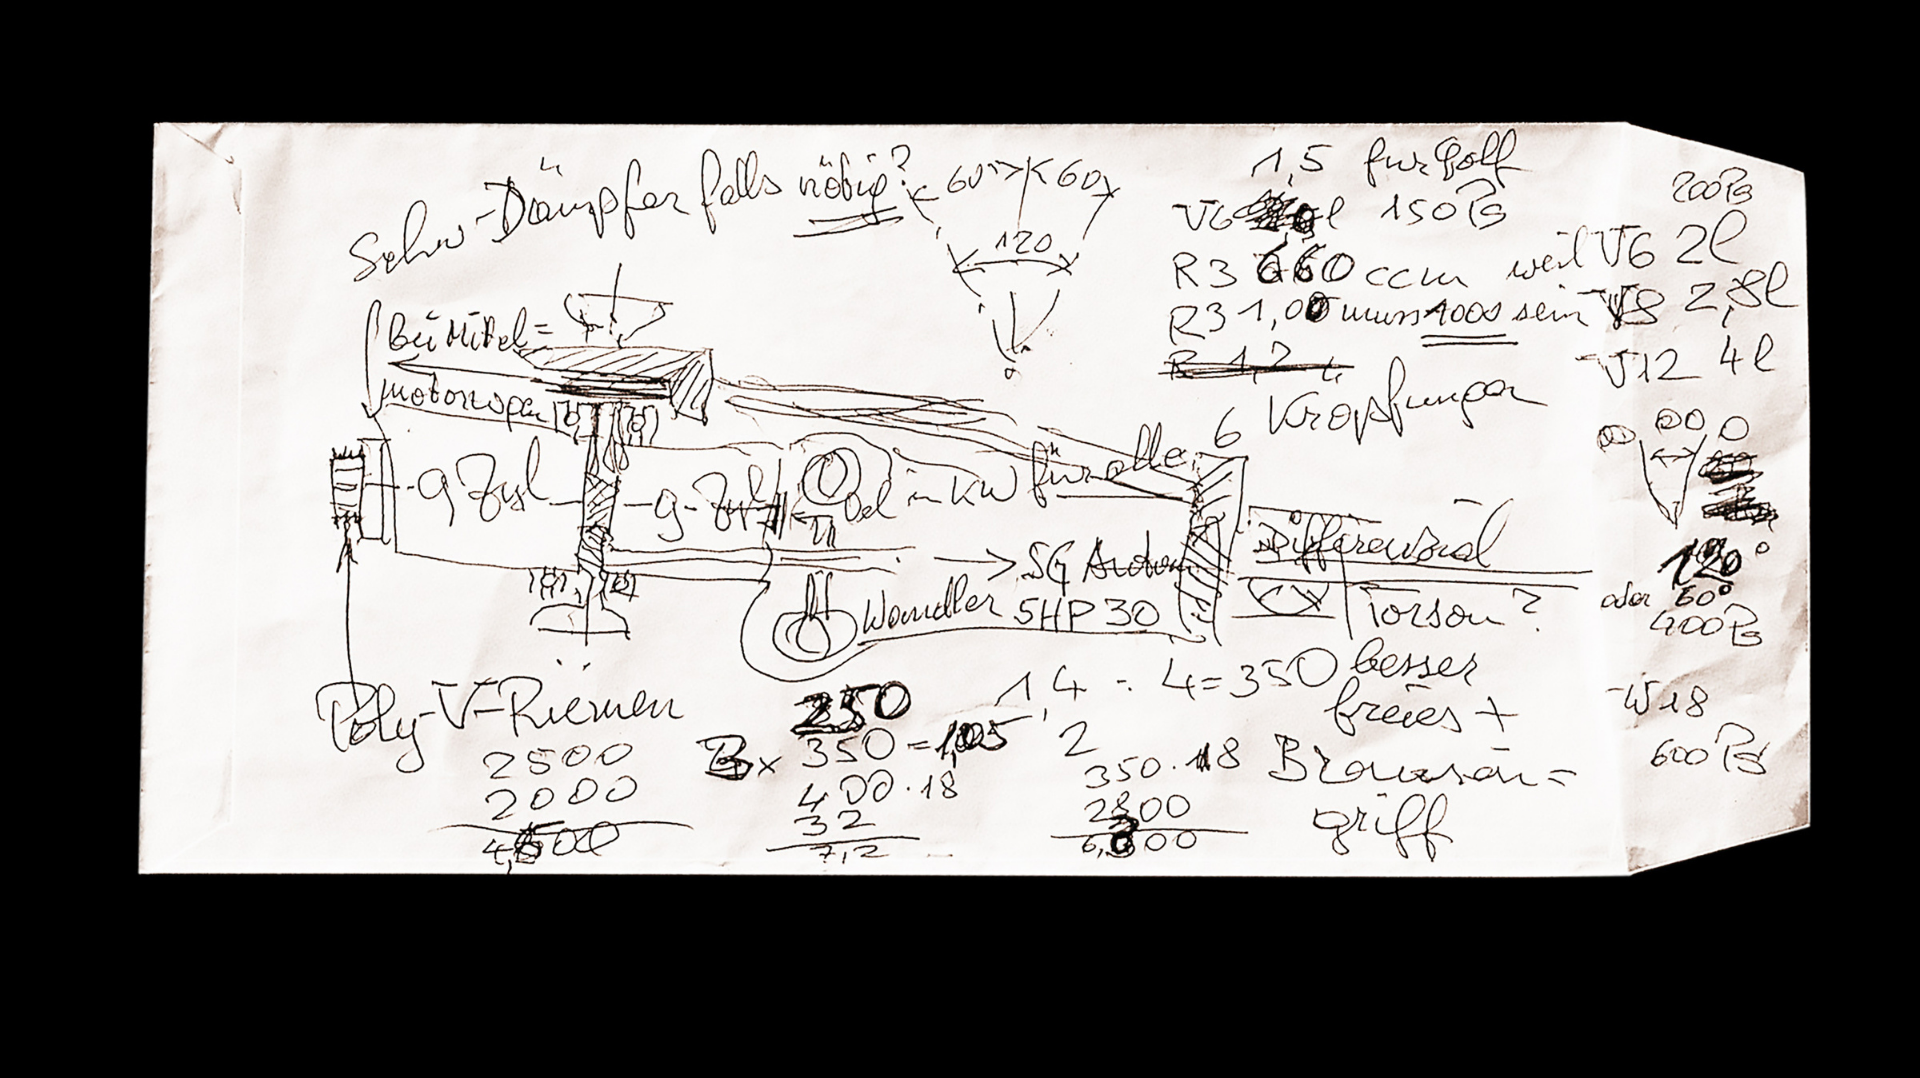 Schw-Dämpfer falls nötig?
60° 60
120
1,5 für Golf
V6 l 150 PS
R3 660 ccm weil V6 2l
R3 1,00 muss 1000 sein V8 2,8l
V12 4l
200 PS
6 Kröpfungen
bei Mittel=
motorwagen
9 Zyl
9-Zyl
Öl in KW für alle
SG Audi
Wandler 5HP30
Differenzial
Torsen?
120°
oder 60°
400 PS
Poly-V-Riemen
2500
2000
4,500
250
3x 350=1,05
400·18
32
7,2
1,4 : 4=350
2
350·18
2800
6,300
besser
freies +
Bremsen=
griff
W18
600 PS